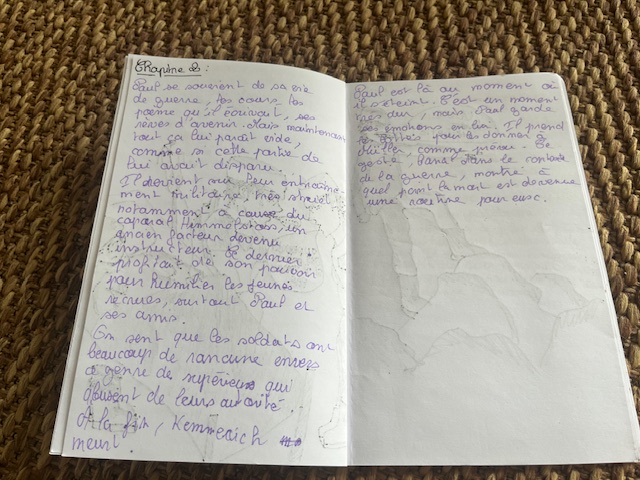 Chapitre 2 :
Paul se souvient de sa vie
de guerre, les cours, les
poème qu'il écrivait, ses
rêves d'avenir. Mais maintenant
tout ça lui parait vide,
comme si cette partie de
lui avait disparu.
Il revient sur leur entraine-
ment militaire, très strict
notamment à cause du
caporal Himmelstoss, un
ancien facteur devenu
instructeur. Ce dernier
profitait de son pouvoir
pour humilier les jeunes
recrues, surtout Paul et
ses amis.
On sent que les soldats ont
beaucoup de rancune envers
ce genre de supérieur qui
abusent de leurs autorité.
A la fin, Kemmerich
meurt
Paul est là au moment où
il s'éteint. C'est un moment
très dur, mais Paul garde
ses émotions en lui. Il prend
ses bottes pour les donner à
Müller comme prévu. Ce
geste, banal dans le contexte
de la guerre, montre à
quel point la mort est devenue
une routine pour eux.